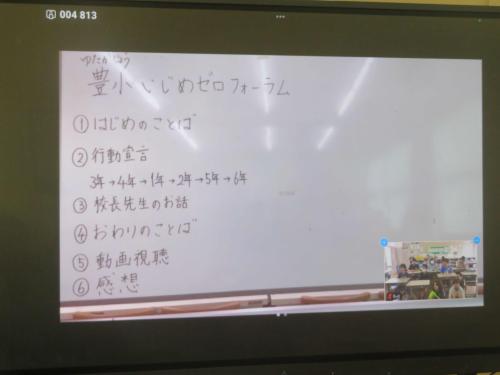 004 813
ゆたかしょう
豊小いじめゼロフォーラム
①はじめのことば
②行動宣言
3年→4年→1年→2年→5年→6年
③校長先生のお話
④おわりのことば
⑤動画視聴
⑥感想